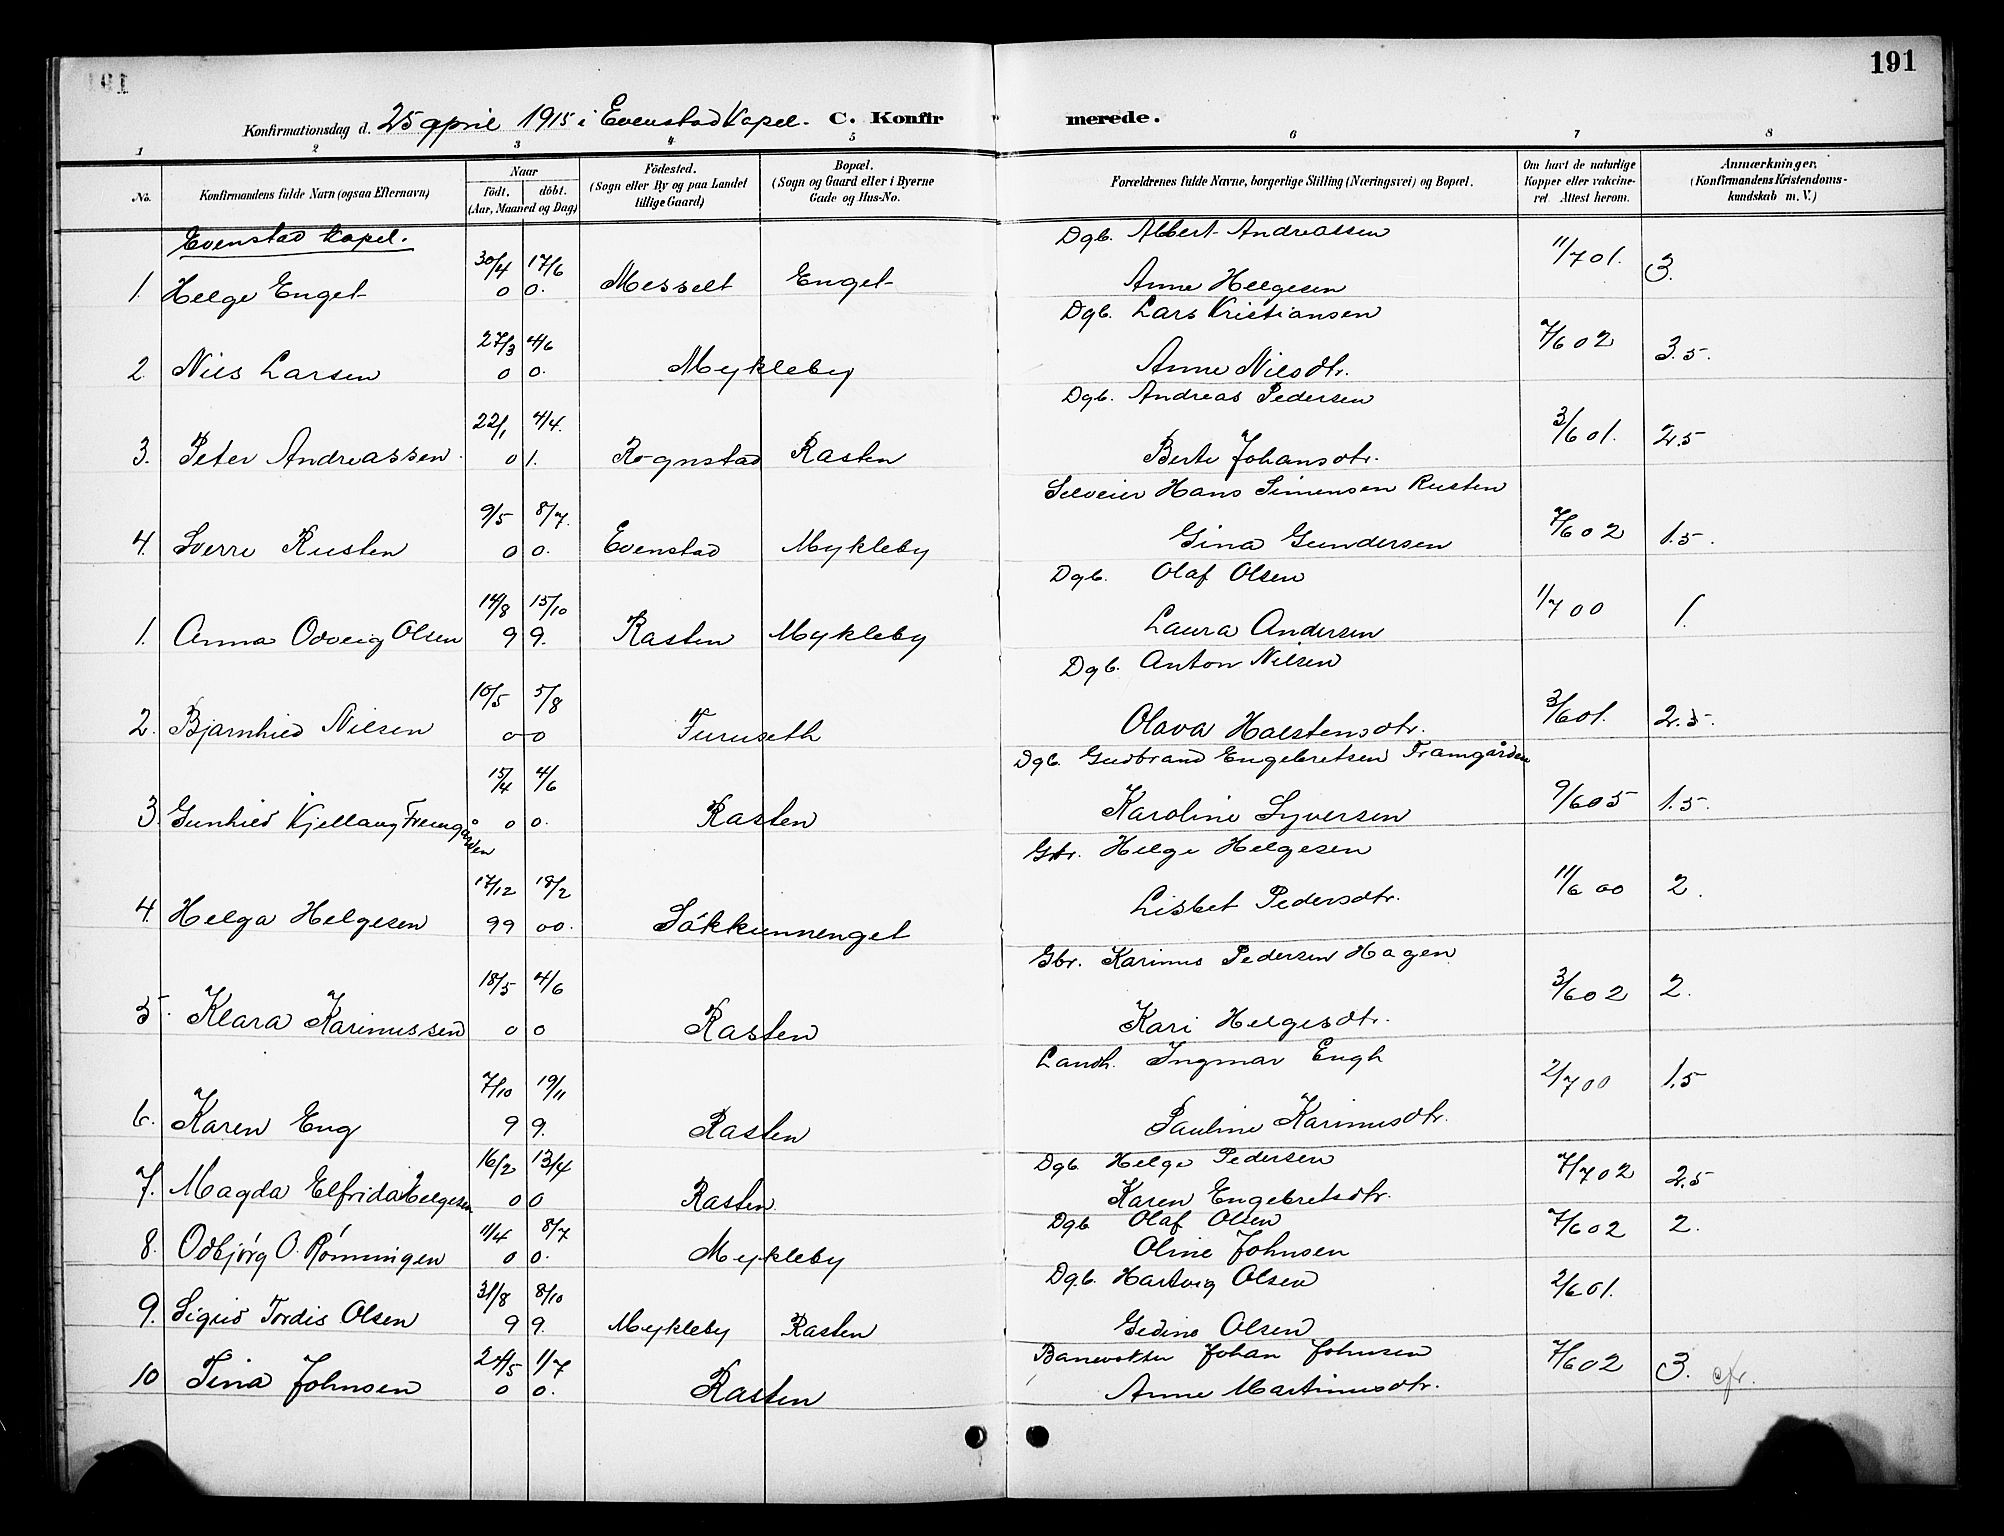 191
Konfirmationsdag d. 25 april 1915 i Evenstad Kapel. C. Konfirmerede.
1 2 3 4 5 6 7 8
No. Konfirmandens fulde Navn (ogsaa Efternavn) Naar født. døbt. (Aar, Maaned og Dag) Födested. (Sogn eller By og paa Landet tillige Gaard) Bopæl. (Sogn og Gaard eller i Byerne Gade og Hus-No. Forældrenes fulde Navne, borgerlige Stilling (Næringsvei) og Bopæl. Om havt de naturlige Kopper eller vakcineret. Attest herom. Anmærkninger. (Konfirmandens Kristendomskundskab m. V.)
Evenstad Kapel.
30/4 17/6 Dgb. Albert Andreassen 11/7 01.
1. Helge Enget 0 0. Messelt Enget Anne Helgesen 3.
27/3 4/6 Dgb. Lars Kristiansen 7/6 02
2. Nils Larsen 0 0. Mykleby Anne Nilsdtr. 3.5.
22/1 4/4. Dgb. Andreas Pedersen 3/6 01.
3. Peter Andreassen 0 1. Rognstad Rasten Berte Johansdtr. 2.5
9/5 8/7. Selveier Hans Simensen Rusten 7/6 02
4. Sverre Rusten 0 0. Evenstad Mykleby Gina Gundersen 1.5.
14/8 15/10 Dgb. Olaf Olsen 1/7 00
1. Anna Odveig Olsen 9 9. Rasten Mykleby Laura Andersen 1.
10/5 5/8 Dgb. Anton Nilsen 3/6 01.
2. Bjarnhild Nilsen 0-0 Furuseth Olava Halstensdtr. 2.5.
15/4 4/6 Dgb. Gudbrand Engebretsen Framgården 9/6 05
3. Gunhild Kjellaug Framgården 0 0. Rasten Karoline Syversen 1.5.
17/12 18/2 Gbr. Helge Helgesen 11/6 00
4. Helga Helgesen 99 00. Søkkunnenget Lisbet Pedersdtr. 2.
18/5 4/6 Gbr. Karinus Pedersen Hagen 3/6 02
5. Klara Karinussen 0 0 Rasten Kari Helgesdtr. 2.
7/10 19/11 Landh. Ingmar Engh 2/7 00
6. Karen Eng 9 9. Rasten Pauline Karinusdtr. 1.5
16/2 13/4 Dgb. Helge Pedersen 7/7 02
7. Magda Elfrida Helgesen 0 0 Rasten Karen Engebretsdtr. 2.5
11/4 8/7 Dgb Olaf Olsen 7/6 02
8. Odbjørg O. Rønningen 0 0. Mykleby Oline Johnsen 2.
31/8 8/10 Dgb. Hartvig Olsen 2/6 01.
9. Sigrid Tordis Olsen 9 9. Mykleby Rasten Gedine Olsen
24/5 1/7 Banevokter Johan Johnsen 7/6 02
10 Tina Johnsen 0 0. Rasten Anne Martinusdtr. 3. cfr.